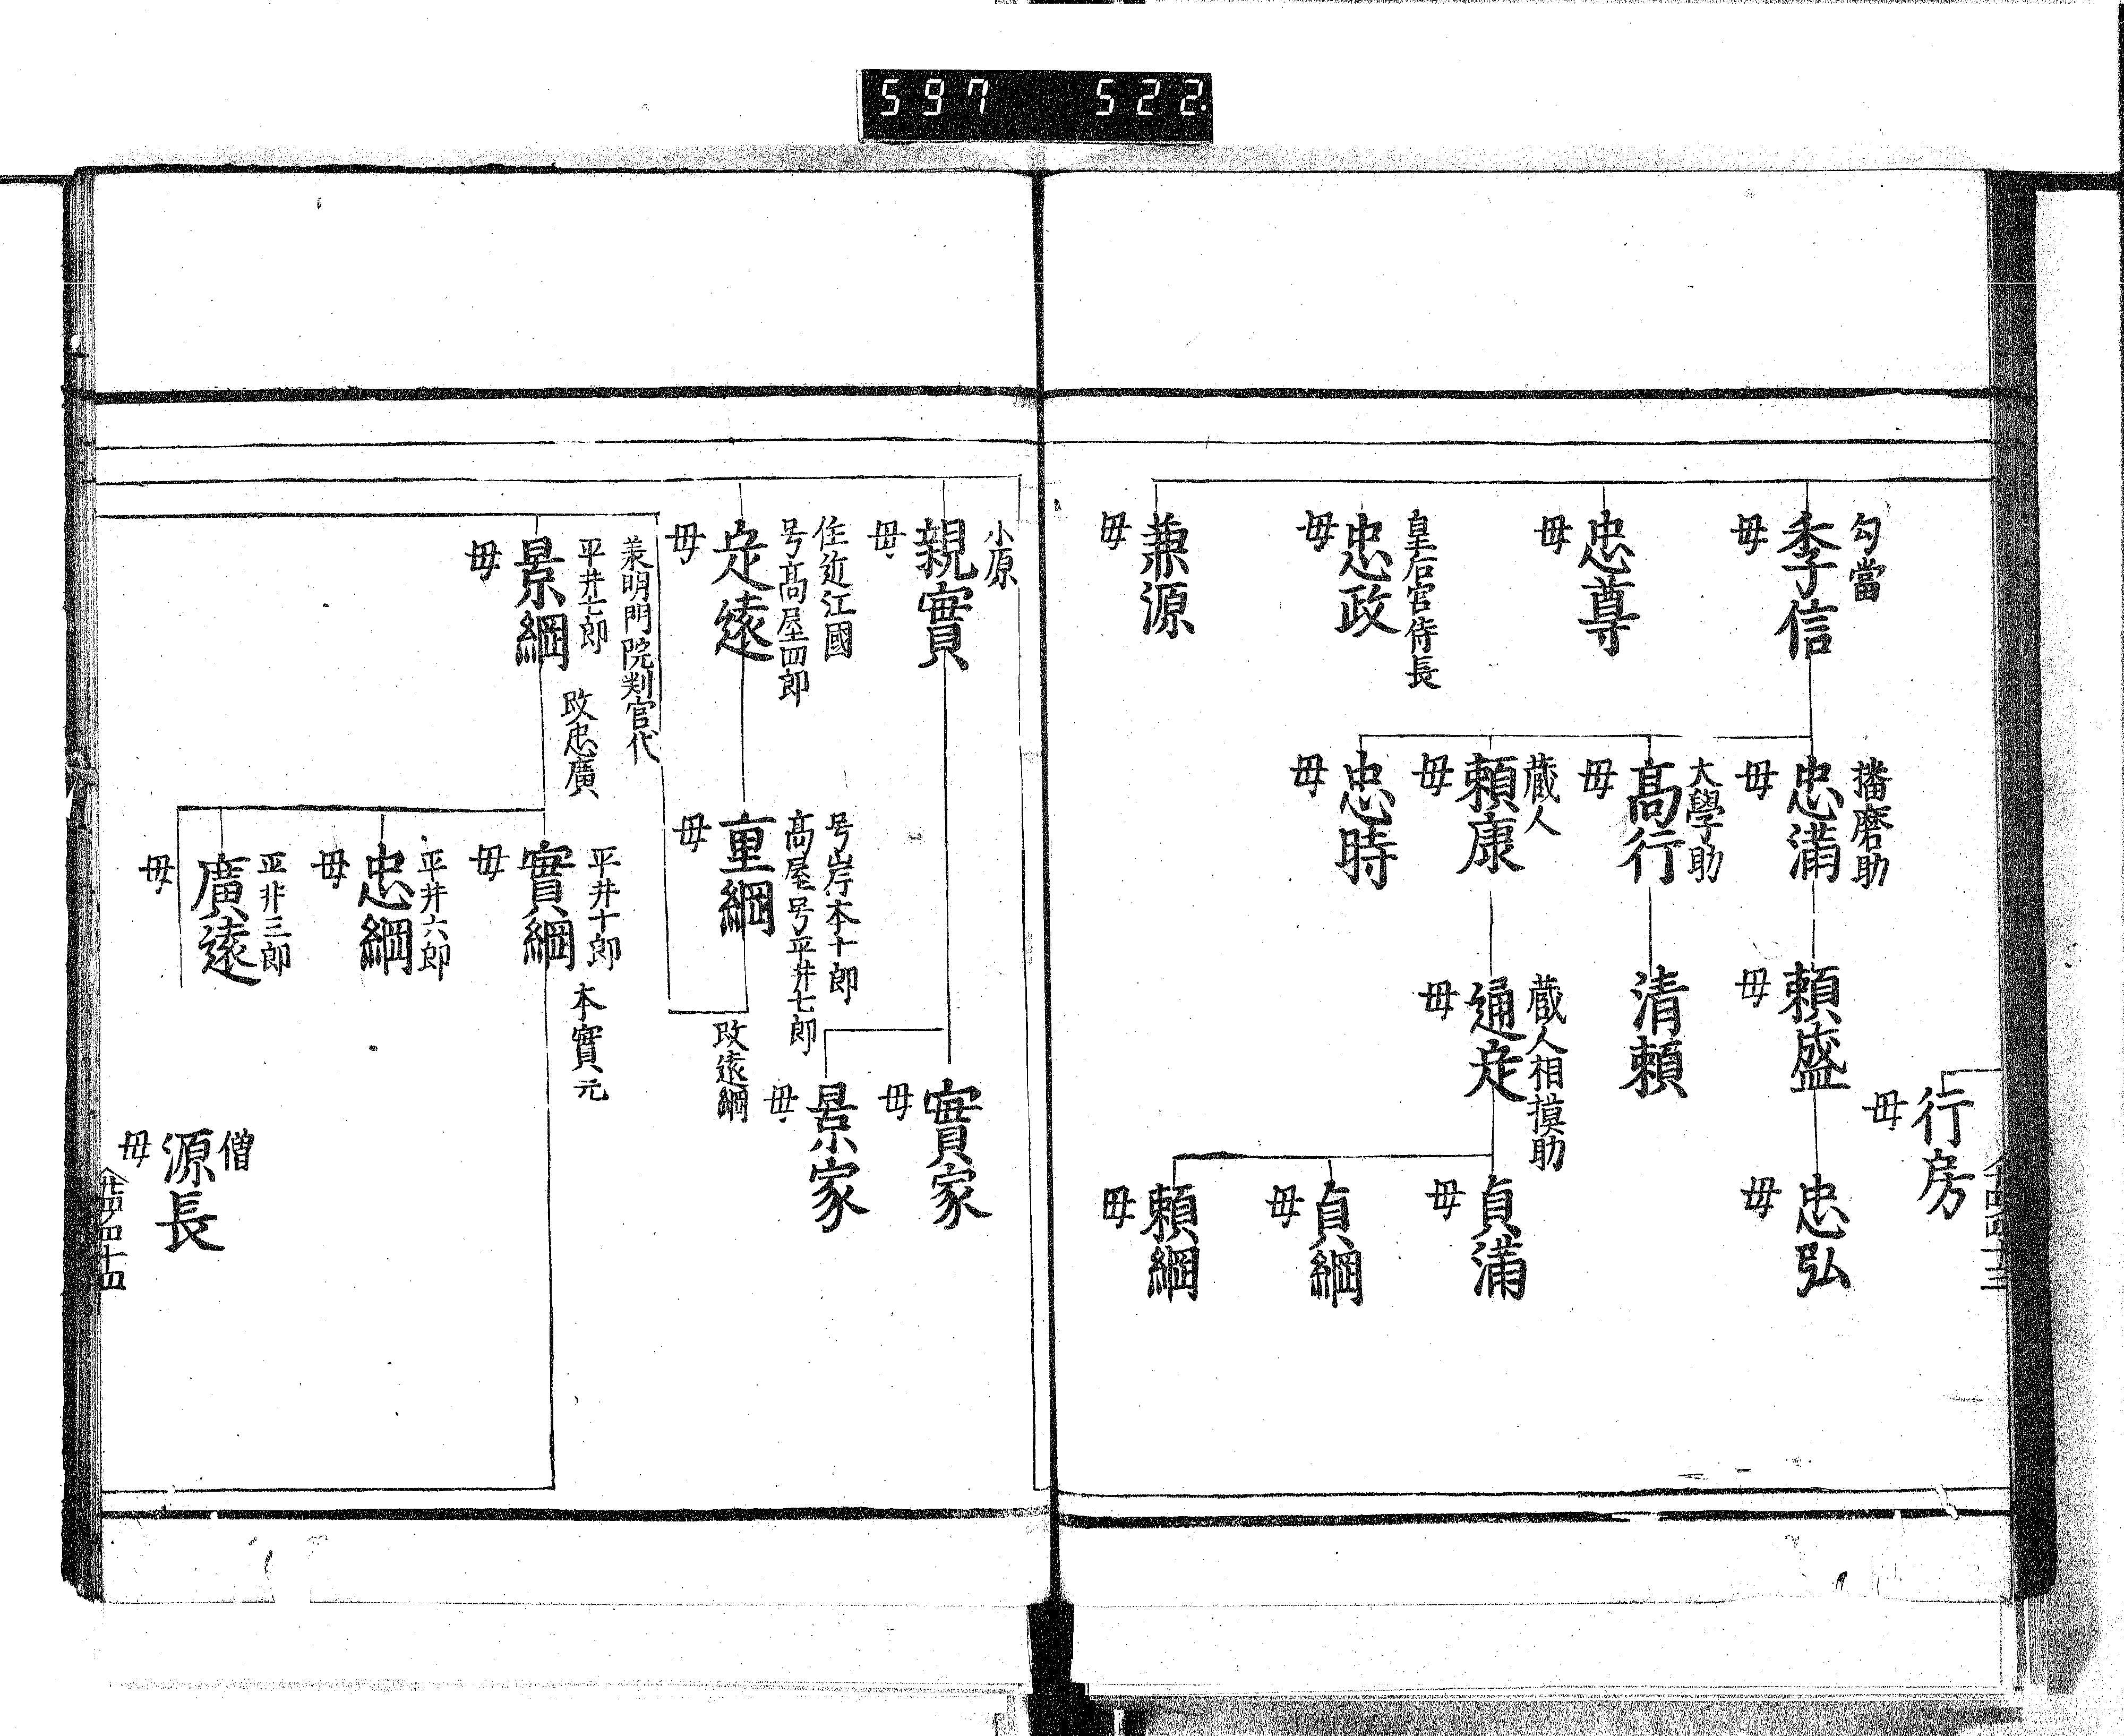 597 522
行房
母
勾當
季信
母
忠尊
母
皇后宮侍長
忠政
母
兼源
母
播磨助
忠満
母
大學助
髙行
母
蔵人
頼康
母
忠時
母
頼盛
母
清頼
蔵人相摸助
通定
母
忠弘
母
貞満
母
貞綱
母
頼綱
母
小原
親實
母
住近江國
号髙屋四郎
定遠
母
号岸本十郎
髙屋号平井七郎
重綱
母
改遠綱
實家
母
景家
母
兼明門院判官代
平井七郎
景綱
母
改忠廣
平井十郎
實綱
母
本實元
平井六郎
忠綱
母
平井三郎
廣遠
母
僧
源長
母